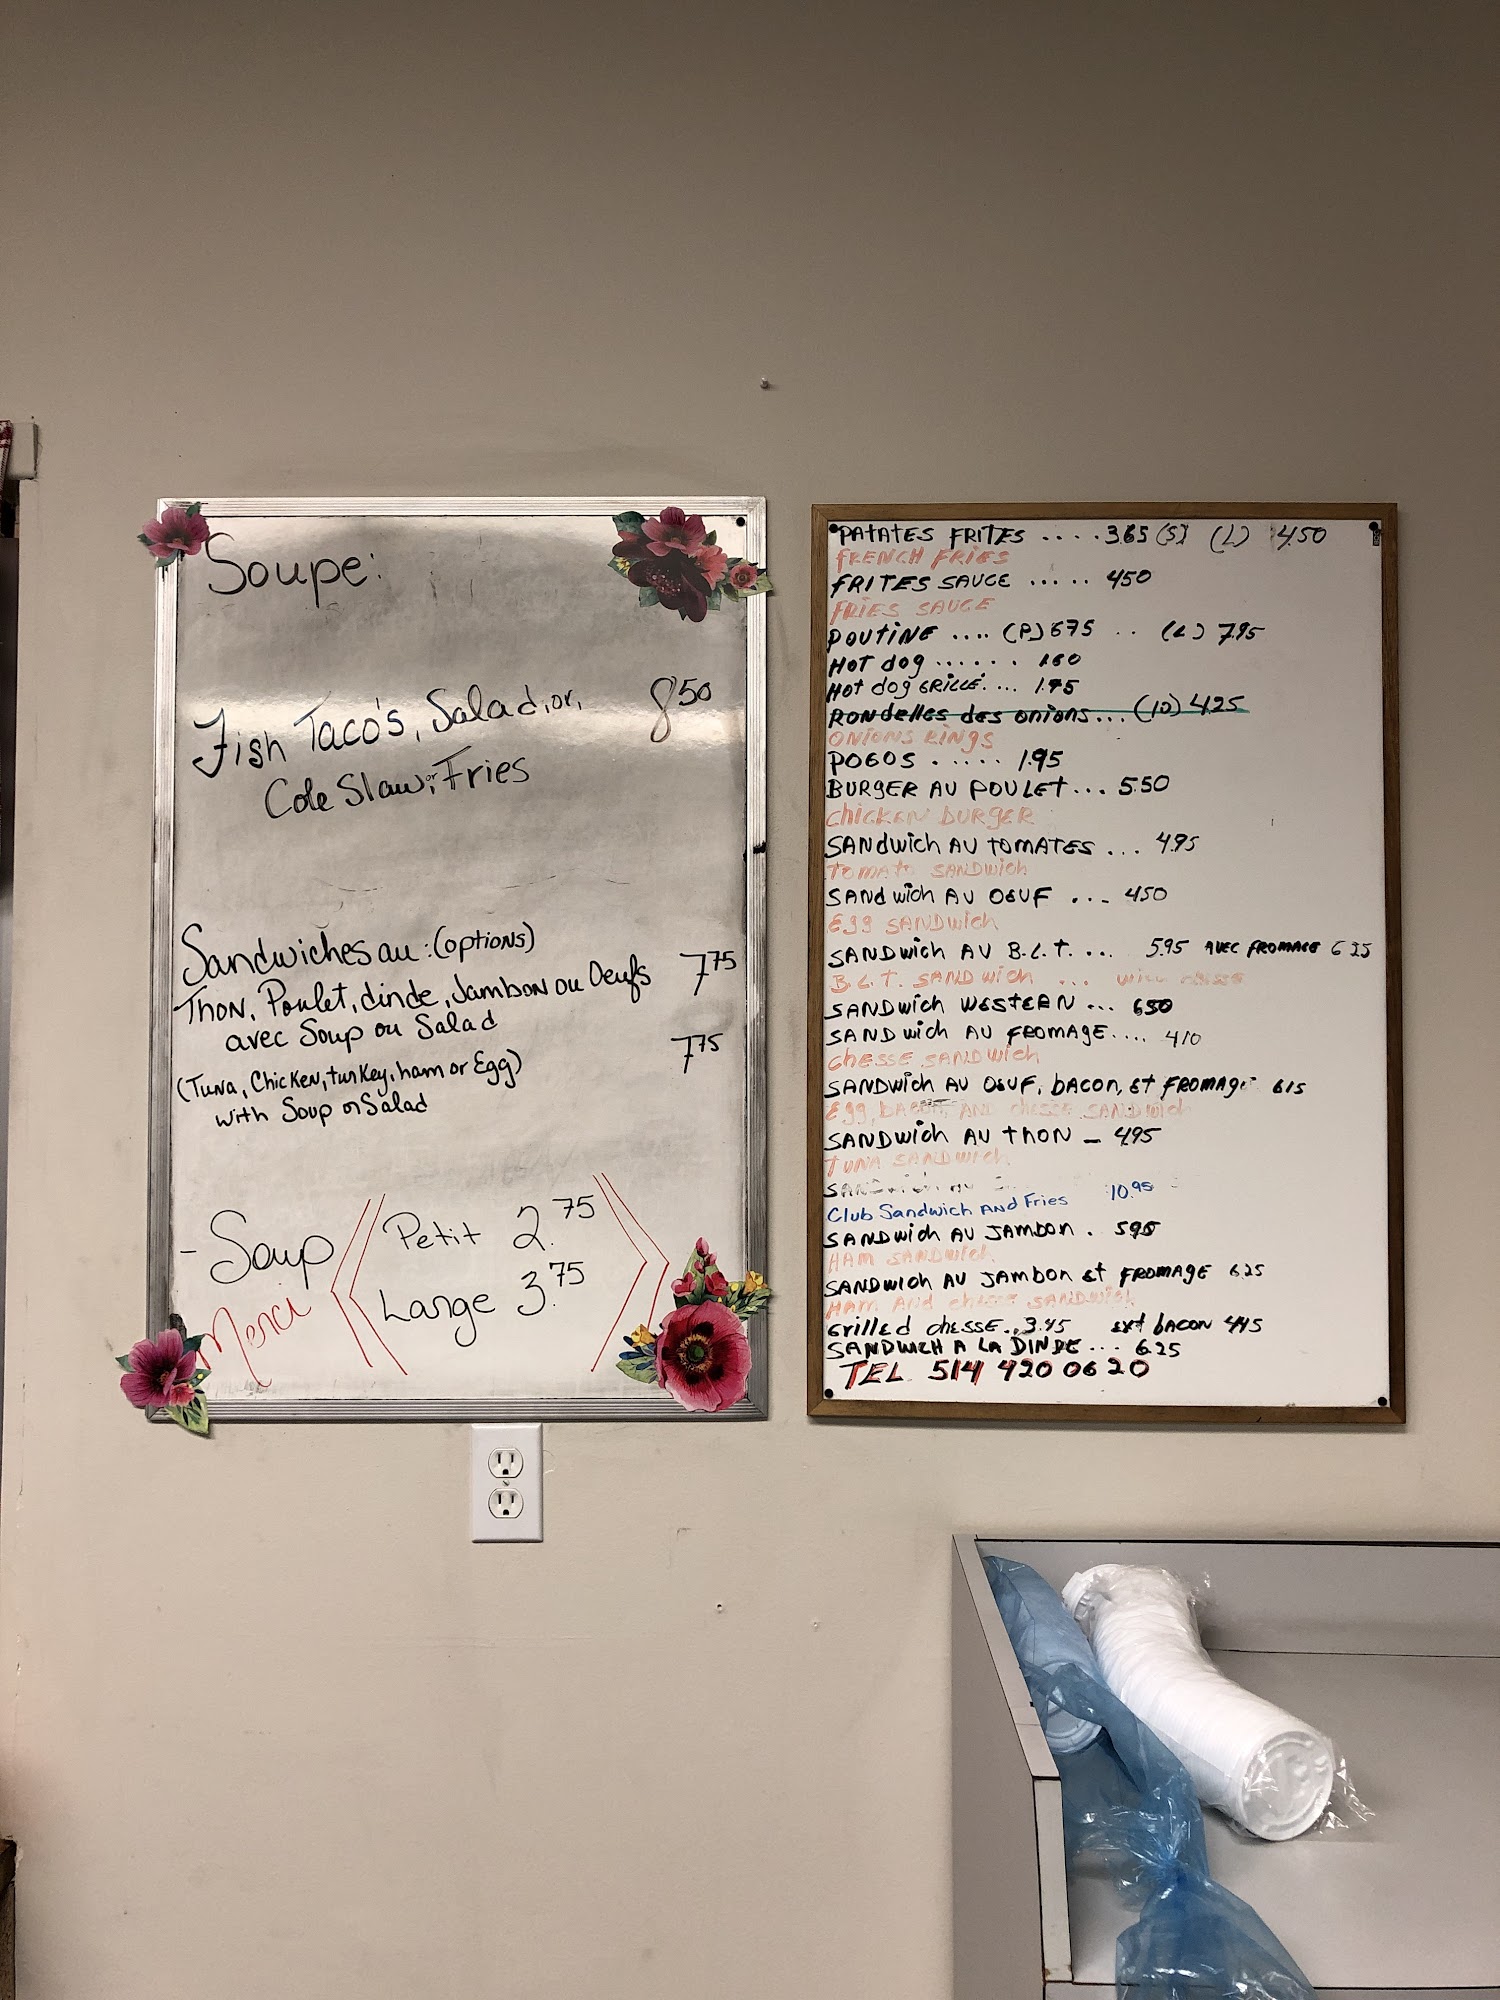 Soupe:
Fish Taco's, Salad, or, 8 50
Cole Slaw, or Fries
Sandwiches au: (options)
Thon, Poulet, dinde, Jambon ou Oeufs 7 75
avec Soup ou Salad
(Tuna, Chicken, turkey, ham or Egg) 7 75
with Soup or Salad
- Soup
Petit 2.75
Large 3.75
Merci
PATATES FRITES .... 365 (S) (L) 450
FRENCH FRIES
FRITES SAUCE ..... 450
FRIES SAUCE
POUTINE .... (P) 675 .. (L) 795
HOT dog ...... 160
HOT dog GRILLÉ.... 195
RONdelles des onions... (10) 425
ONIONS RINGS
POGOS ..... 195
BURGER AU POULET... 550
Chicken BURGER
SANdwich AU TOMATES ... 495
TOMATO SANDWich
SANdwich AU OEUF ... 450
Egg SANDWich
SANDWich AU B.L.T. ... 595 AVEC FROMAGE 635
B.L.T. SANDWich ... with chesse
SANDWich WESTERN ... 650
SANDwich AU FROMAGE.... 410
CHESSE SANDWich
SANDWich AU OEUF, bACON, Et FROMAGE 615
Egg, bACON, AND chesse SANDWich
SANDWich AU thON - 495
TUNA SANDWich
SANDWich AU
Club Sandwich AND Fries 10.95
SANDWich AU JAMbON . 595
HAM SANDWich
SANDWich AU JAMbON Et FROMAGE 625
HAM AND chesse SANDWich
GRILLEd chESSE.. 3.45 ext bACON 445
SANDWICH A LA DINDE ... 625
TEL. 514 420 0620